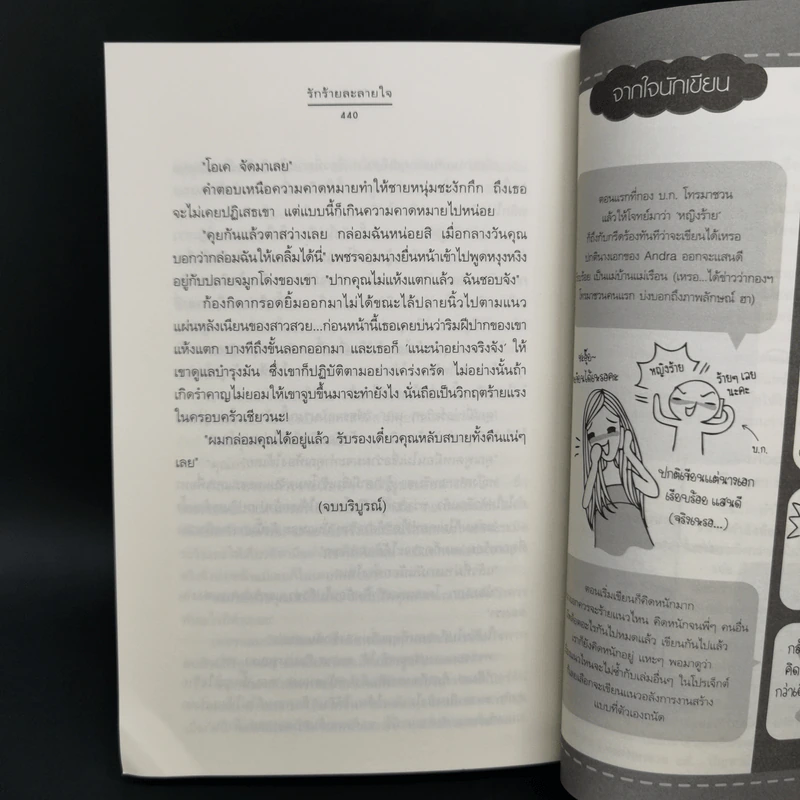 รักร้ายละลายใจ
440
"โอเค จัดมาเลย"
คำตอบเหนือความคาดหมายทำให้ชายหนุ่มชะงักกึก ถึงเธอ
จะไม่เคยปฏิเสธเขา แต่แบบนี้ก็เกินความคาดหมายไปหน่อย
"คุยกันแล้วตาสว่างเลย กล่อมฉันหน่อยสิ เมื่อกลางวันคุณ
บอกว่ากล่อมฉันให้เคลิ้มได้นี่" เพชรจอมนางยื่นหน้าเข้าไปพูดหงุงหงิง
อยู่กับปลายจมูกโด่งของเขา "ปากคุณไม่แห้งแตกแล้ว ฉันชอบจัง"
ก้องกิดากรอดยิ้มออกมาไม่ได้ขณะไล้ปลายนิ้วไปตามแนว
แผ่นหลังเนียนของสาวสวย...ก่อนหน้านี้เธอเคยบ่นว่าริมฝีปากของเขา
แห้งแตก บางทีถึงขั้นลอกออกมา และเธอก็ 'แนะนำอย่างจริงจัง' ให้
เขาดูแลบำรุงมัน ซึ่งเขาก็ปฏิบัติตามอย่างเคร่งครัด ไม่อย่างนั้นถ้า
เกิดรำคาญไม่ยอมให้เขาจูบขึ้นมาจะทำยังไง นั่นถือเป็นวิกฤตร้ายแรง
ในครอบครัวเชียวนะ!
"ผมกล่อมคุณได้อยู่แล้ว รับรองเดี๋ยวคุณหลับสบายทั้งคืนแน่ๆ
เลย"
(จบบริบูรณ์)
จากใจนักเขียน
ตอนแรกที่กอง บ.ก. โทรมาชวน
แล้วให้โจทย์มาว่า 'หญิงร้าย'
ก็ถึงกับกรีดร้องทันทีว่าจะเขียนได้เหรอ
ปกตินางเอกของ Andra ออกจะแสนดี
เป็นแม่บ้านแม่เรือน (เหรอ...ได้ข่าวว่ากองฯ
โทรมาชวนคนแรก บ่งบอกถึงภาพลักษณ์ ฮา)
หญิงร้าย
ร้ายๆ เลย
นะคะ
บ.ก.
ปกติเขียนแต่นางเอก
เรียบร้อย แสนดี
(จริงเหรอ...)
ตอนเริ่มเขียนก็คิดหนักมาก
ควรจะร้ายแนวไหน คิดหนักจนพี่ๆ คนอื่น
อะไรกันไปหมดแล้ว เขียนกันไปแล้ว
ยังคิดหนักอยู่ แหะๆ พอมาดูว่า
แนวไหนจะไม่ซ้ำกับเล่มอื่นๆ ในโปรเจ็กต์
เลือกจะเขียนแนวอลังการงานสร้าง
แบบที่ตัวเองถนัด